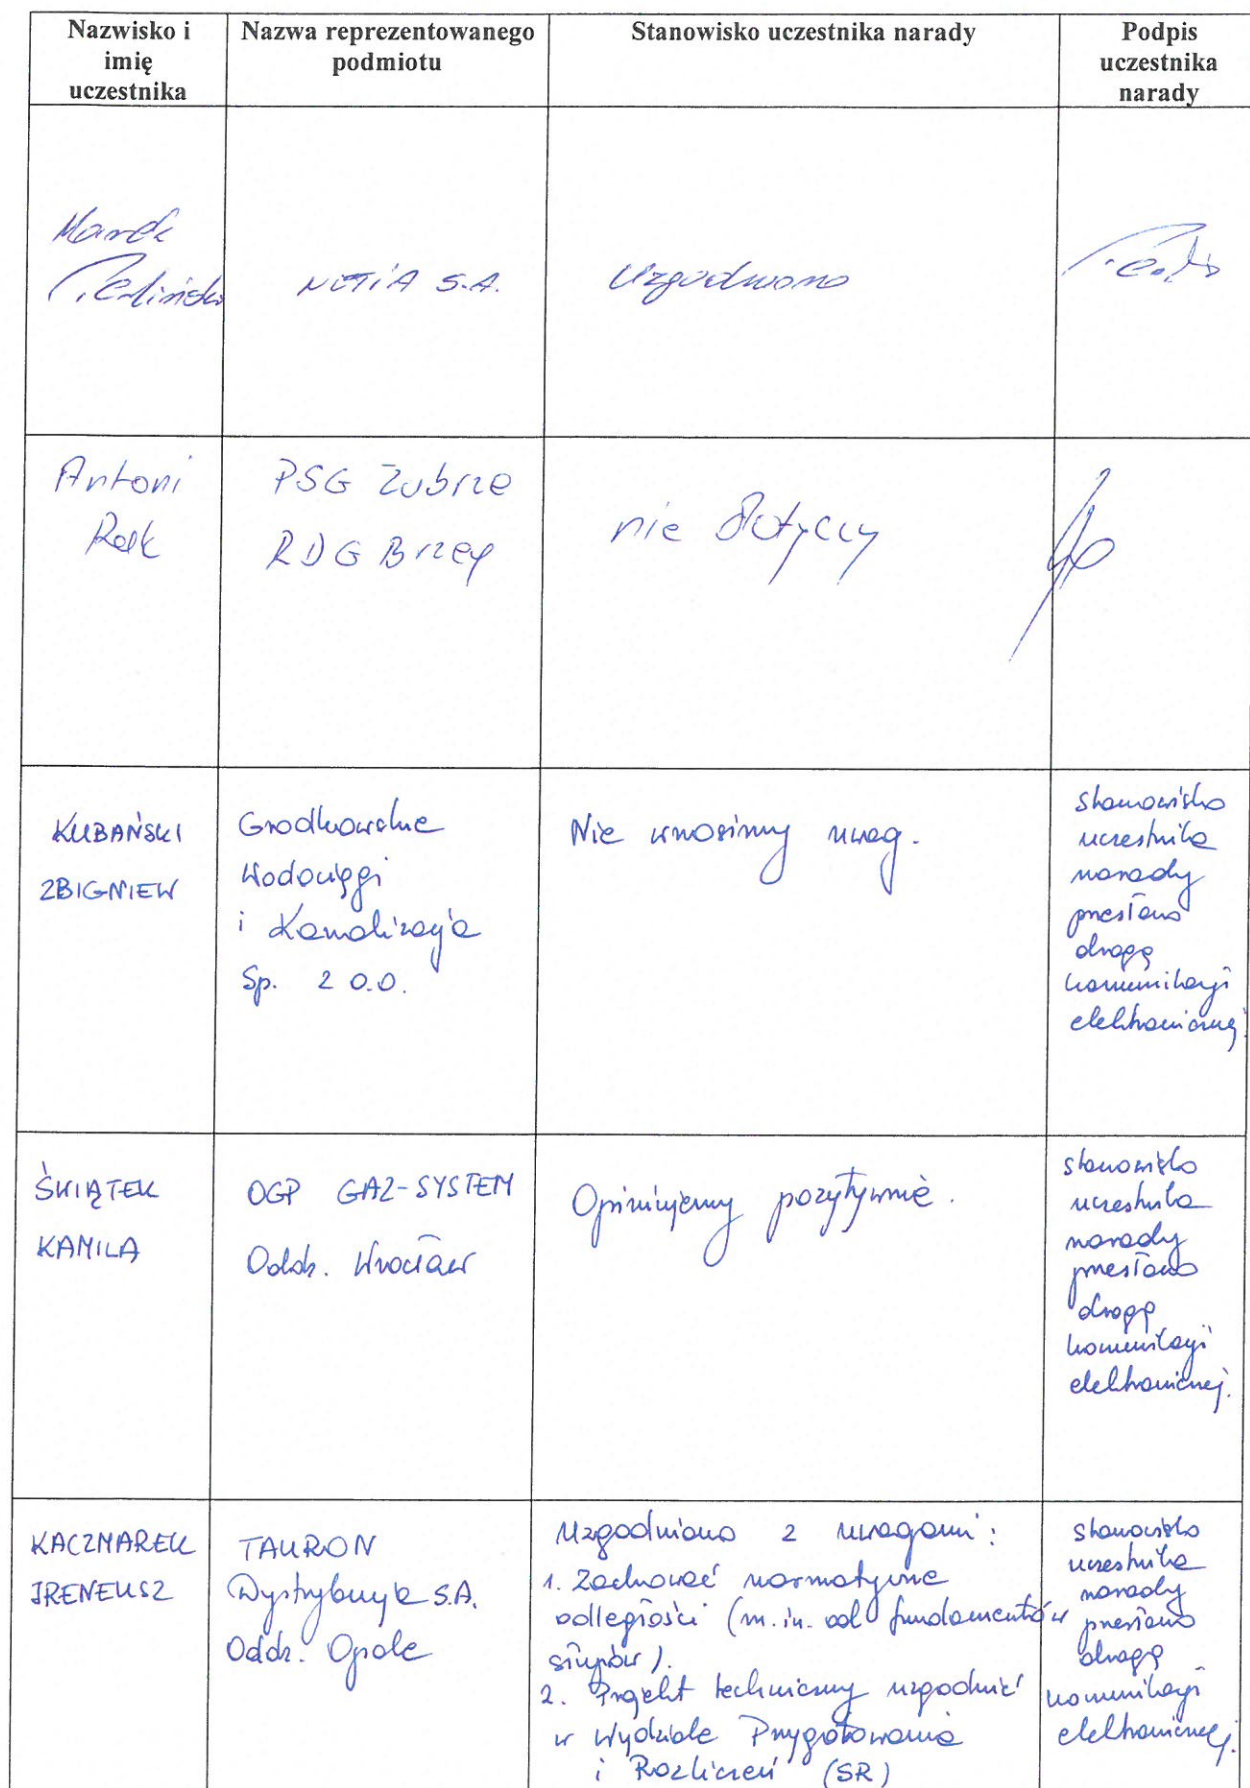 Nazwisko i
imię
uczestnika
Nazwa reprezentowanego
podmiotu
Stanowisko uczestnika narady
Podpis
uczestnika
narady
Marek
NETIA S.A.
Uzgodniono
Antoni
PSG Zabrze
RDG Brzeg
nie dotyczy
KUBAŃSKI
ZBIGNIEW
Grodkowskie
Wodociągi
i Kanalizacja
Sp. z o.o.
Nie wnosimy uwag.
stanowisko
uczestnika
narady
przesłano
drogą
komunikacji
elektronicznej.
ŚWIĄTEK
KAMILA
OGP GAZ-SYSTEM
Oddz. Wrocław
Opiniujemy pozytywnie.
stanowisko
uczestnika
narady
przesłano
drogą
komunikacji
elektronicznej.
KACZMAREK
IRENEUSZ
TAURON
Dystrybucja S.A.
Oddz. Opole
Uzgodniono z uwagami:
1. Zachować normatywne
odległości (m.in. od fundamentów
słupów).
2. Projekt techniczny uzgodnić
w Wydziale Przygotowania
i Rozliczeń (SR)
stanowisko
uczestnika
narady
przesłano
drogą
komunikacji
elektronicznej.